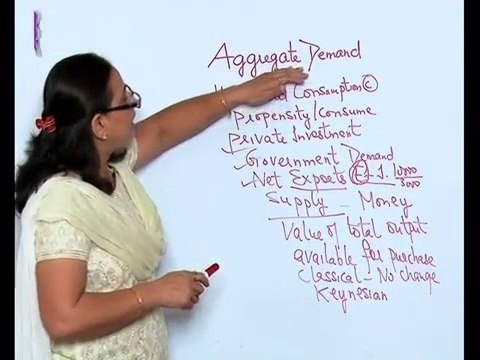 Aggregate Demand
Consumption (C)
Propensity/Consume
Private Investment
Government Demand
Net Exports E-1. 10000
5000
Supply - Money
Value of total output
available for purchase
Classical - No change
Keynesian